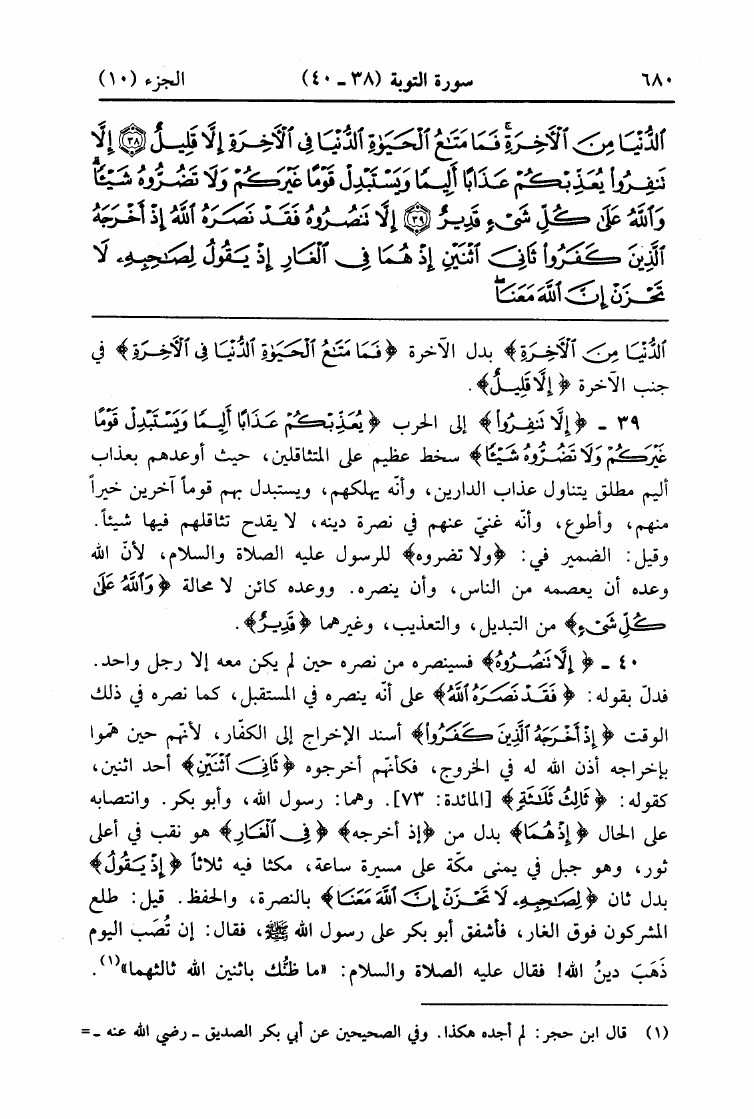 ٦٨٠ سورة التوبة (٣٨ ـ ٤٠) الجزء (١٠)
ٱلدُّنْيَا مِنَ ٱلْأَخِرَةِ ۚ فَمَا مَتَـٰعُ ٱلْحَيَوٰةِ ٱلدُّنْيَا فِى ٱلْأَخِرَةِ إِلَّا قَلِيلٌ ٣٨ إِلَّا
تَنفِرُوا۟ يُعَذِّبْكُمْ عَذَابًا أَلِيمًا وَيَسْتَبْدِلْ قَوْمًا غَيْرَكُمْ وَلَا تَضُرُّوهُ شَيْـًٔا ۗ
وَٱللَّهُ عَلَىٰ كُلِّ شَىْءٍ قَدِيرٌ ٣٩ إِلَّا تَنصُرُوهُ فَقَدْ نَصَرَهُ ٱللَّهُ إِذْ أَخْرَجَهُ
ٱلَّذِينَ كَفَرُوا۟ ثَانِىَ ٱثْنَيْنِ إِذْ هُمَا فِى ٱلْغَارِ إِذْ يَقُولُ لِصَـٰحِبِهِۦ لَا
تَحْزَنْ إِنَّ ٱللَّهَ مَعَنَا ۖ
ٱلدُّنْيَا مِنَ ٱلْأَخِرَةِ﴾ بدل الآخرة ﴿فَمَا مَتَـٰعُ ٱلْحَيَوٰةِ ٱلدُّنْيَا فِى ٱلْأَخِرَةِ﴾ في
جنب الآخرة ﴿إِلَّا قَلِيلٌ﴾.
٣٩ ـ ﴿إِلَّا تَنفِرُوا۟﴾ إلى الحرب ﴿يُعَذِّبْكُمْ عَذَابًا أَلِيمًا وَيَسْتَبْدِلْ قَوْمًا
غَيْرَكُمْ وَلَا تَضُرُّوهُ شَيْـًٔا﴾ سخط عظيم على المتثاقلين، حيث أوعدهم بعذاب
أليم مطلق يتناول عذاب الدارين، وأنّه يهلكهم، ويستبدل بهم قوماً آخرين خيراً
منهم، وأطوع، وأنّه غنيّ عنهم في نصرة دينه، لا يقدح تثاقلهم فيها شيئاً.
وقيل: الضمير في: ﴿ولا تضروه﴾ للرسول عليه الصلاة والسلام، لأنّ الله
وعده أن يعصمه من الناس، وأن ينصره. ووعده كائن لا محالة ﴿وَٱللَّهُ عَلَىٰ
كُلِّ شَىْءٍ﴾ من التبديل، والتعذيب، وغيرهما ﴿قَدِيرٌ﴾.
٤٠ ـ ﴿إِلَّا تَنصُرُوهُ﴾ فسينصره من نصره حين لم يكن معه إلا رجل واحد.
فدلّ بقوله: ﴿فَقَدْ نَصَرَهُ ٱللَّهُ﴾ على أنّه ينصره في المستقبل، كما نصره في ذلك
الوقت ﴿إِذْ أَخْرَجَهُ ٱلَّذِينَ كَفَرُوا۟﴾ أسند الإخراج إلى الكفّار، لأنّهم حين همّوا
بإخراجه أذن الله له في الخروج، فكأنّهم أخرجوه ﴿ثَانِىَ ٱثْنَيْنِ﴾ أحد اثنين،
كقوله: ﴿ثَالِثُ ثَلَـٰثَةٍ﴾ [المائدة: ٧٣]. وهما: رسول الله، وأبو بكر. وانتصابه
على الحال ﴿إِذْ هُمَا﴾ بدل من ﴿إذ أخرجه﴾ ﴿فِى ٱلْغَارِ﴾ هو نقب في أعلى
ثور، وهو جبل في يمنى مكّة على مسيرة ساعة، مكثا فيه ثلاثاً ﴿إِذْ يَقُولُ﴾
بدل ثان ﴿لِصَـٰحِبِهِۦ لَا تَحْزَنْ إِنَّ ٱللَّهَ مَعَنَا﴾ بالنصرة، والحفظ. قيل: طلع
المشركون فوق الغار، فأشفق أبو بكر على رسول الله ﷺ، فقال: إن تُصَب اليوم
ذَهَبَ دينُ الله! فقال عليه الصلاة والسلام: «ما ظنُّك باثنين الله ثالثهما»(١).
(١) قال ابن حجر: لم أجده هكذا. وفي الصحيحين عن أبي بكر الصديق ـ رضي الله عنه ـ =